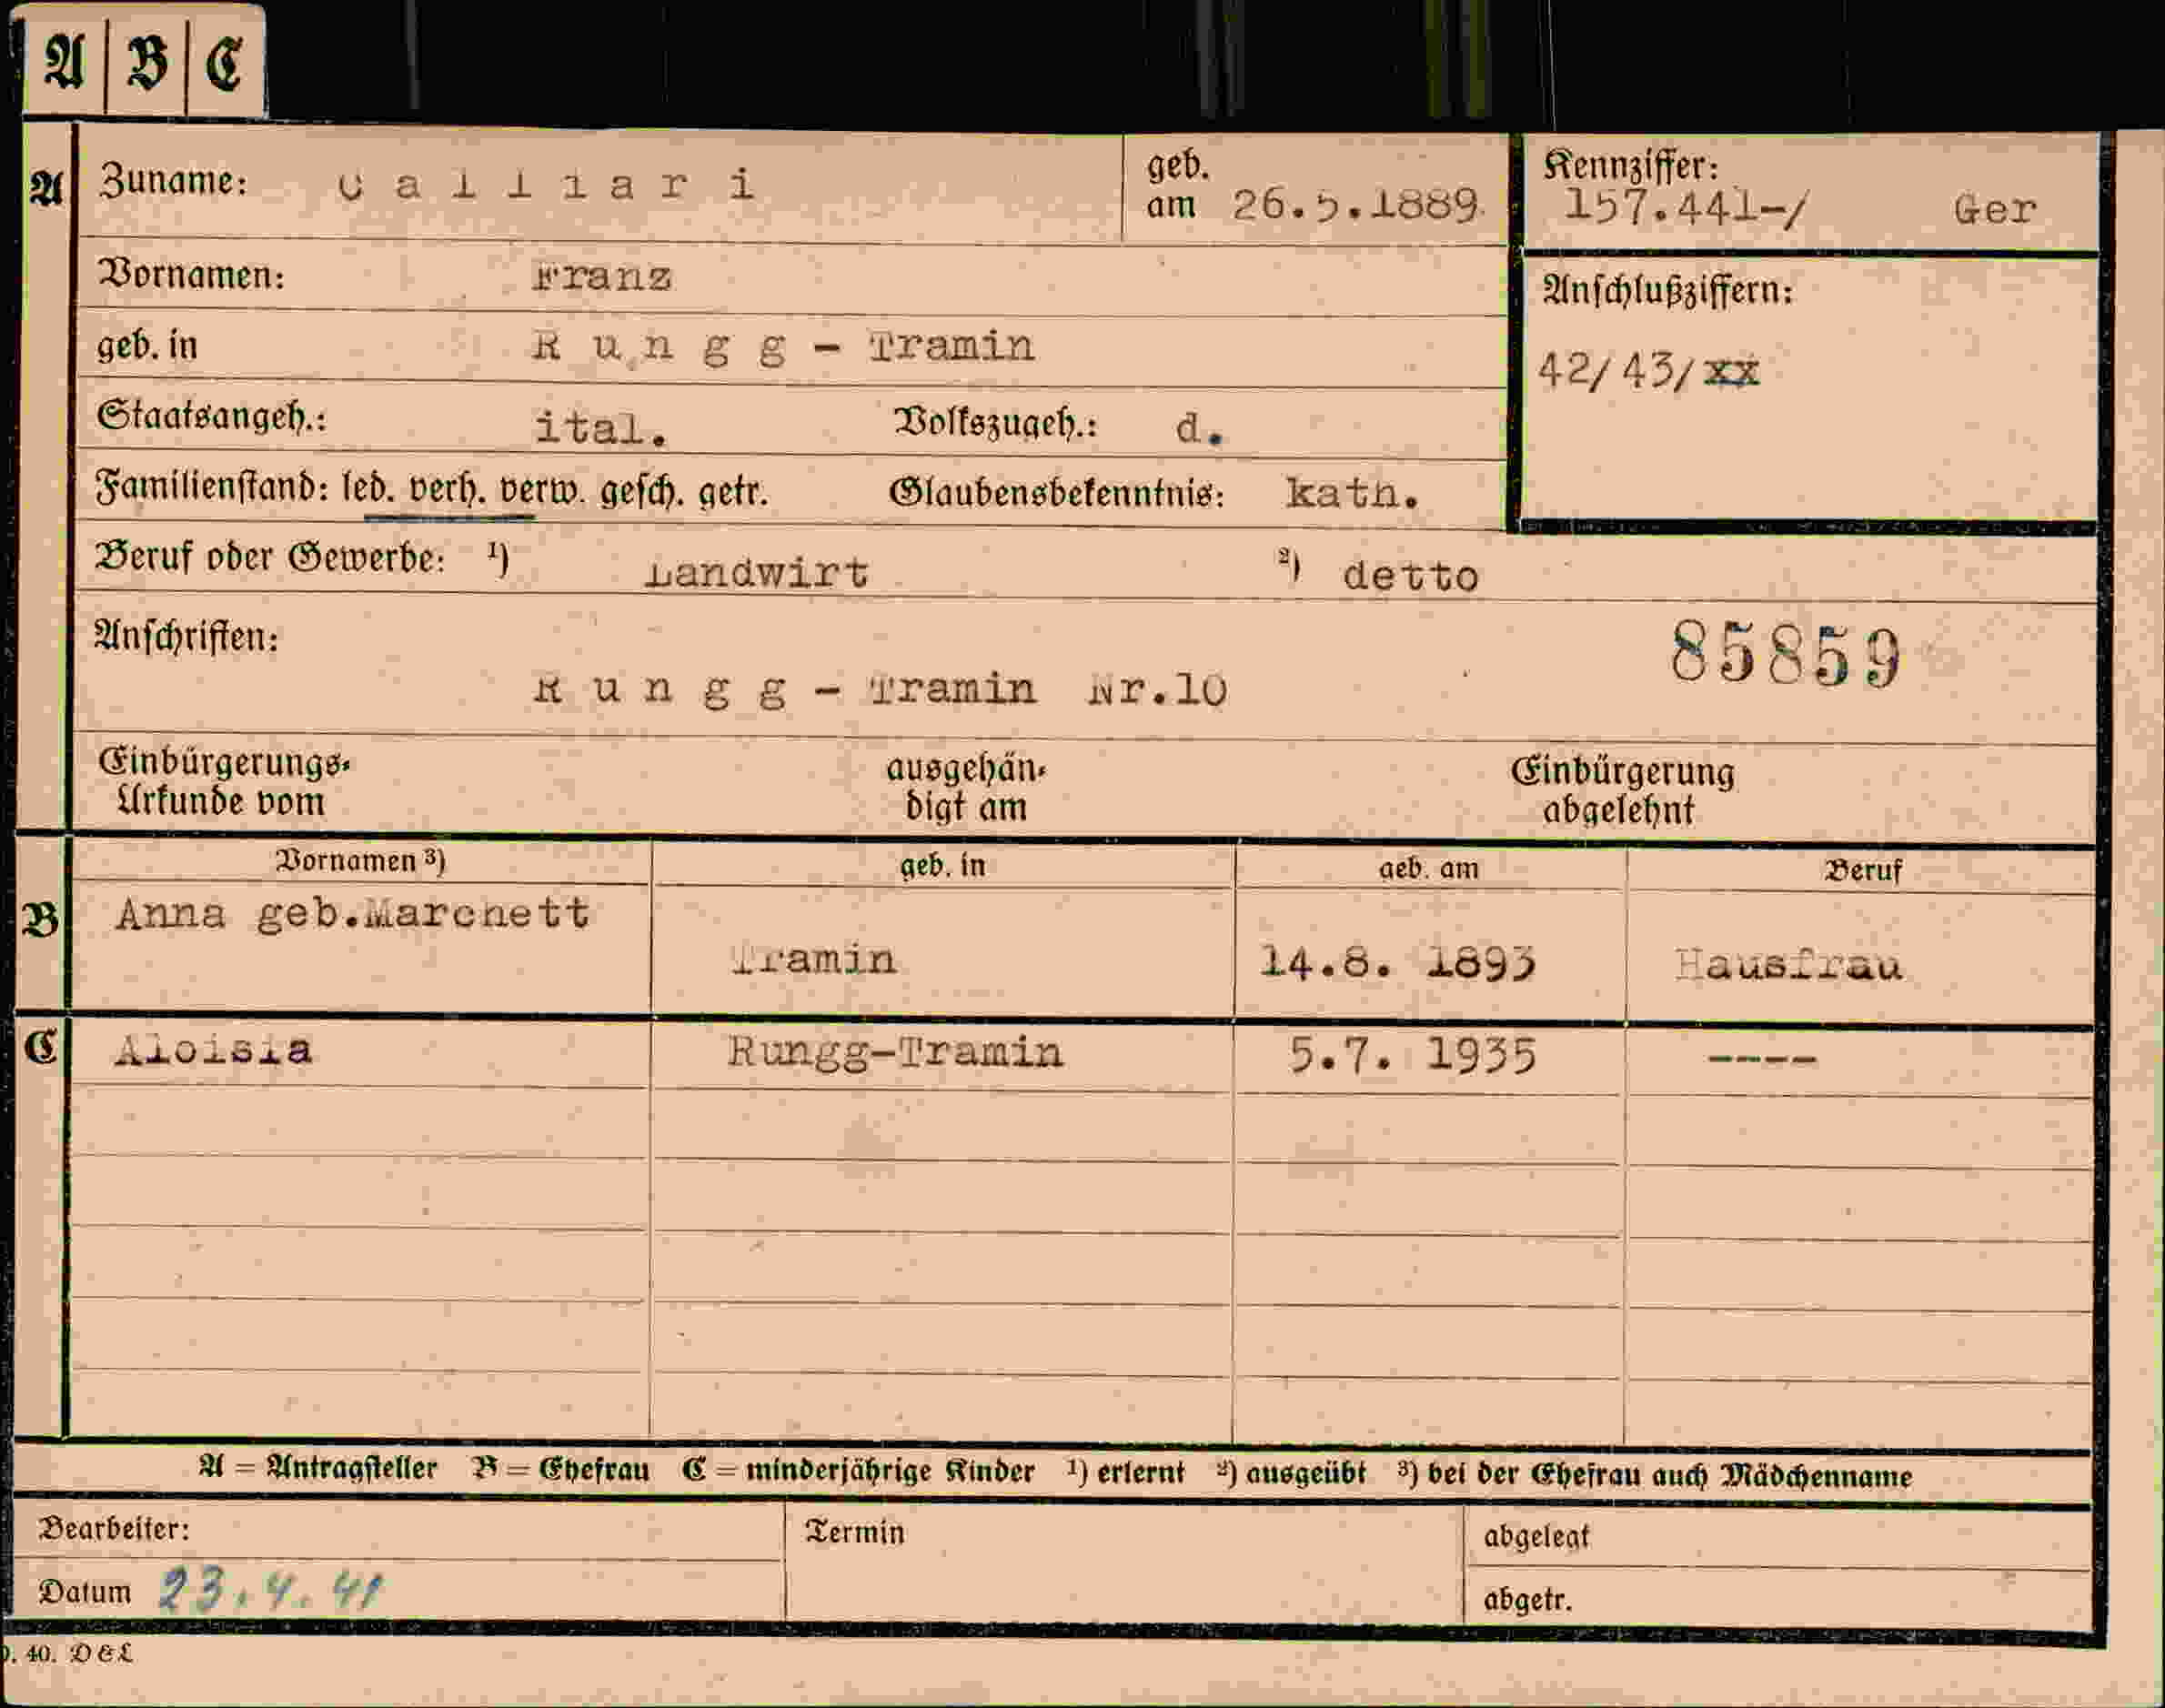 A B C
A Zuname: C a l l i a r i geb. am 26.5.1889 Kennziffer: 157.441-/ Ger
Vornamen: Franz
Anschlußziffern:
geb. in R u n g g - Tramin
42/43/xx
Staatsangeh.: ital. Volkszugeh.: d.
Familienstand: led. verh. verw. gesch. getr. Glaubensbekenntnis: kath.
Beruf oder Gewerbe: 1) Landwirt 2) detto
Anschriften:
85859
R u n g g - Tramin Nr.10
Einbürgerungs- ausgehän- Einbürgerung
Urkunde vom digt am abgelehnt
Vornamen 3) geb. in geb. am Beruf
B Anna geb.Marchett
Tramin 14.8. 1893 Hausfrau
C Aloisia Rungg-Tramin 5.7. 1935 ----
A = Antragsteller B = Ehefrau C = minderjährige Kinder 1) erlernt 2) ausgeübt 3) bei der Ehefrau auch Mädchenname
Bearbeiter: Termin abgelegt
Datum 23.4.41 abgetr.
. 40. D & L